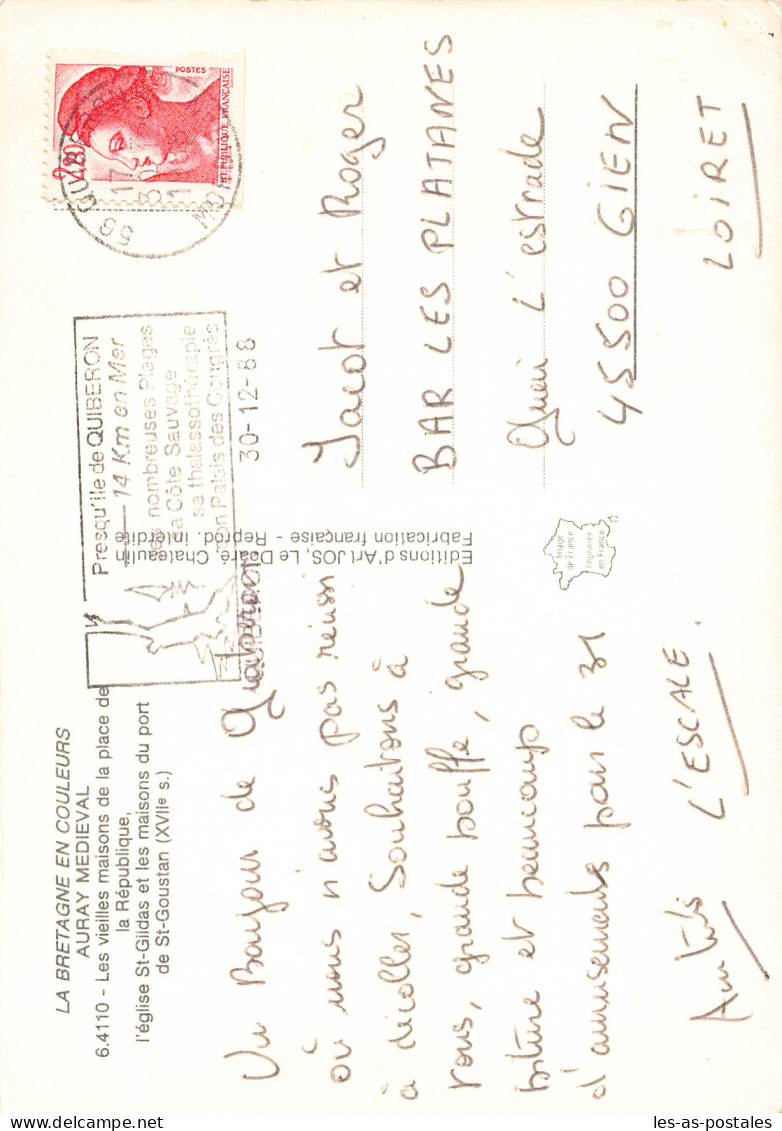 LA BRETAGNE EN COULEURS
AURAY MEDIEVAL
6.4110 - Les vieilles maisons de la place de
la République,
l'église St-Gildas et les maisons du port
de St-Goustan (XVIIe s.)
Un Bonjour de Quiberon
où nous n'avons pas réussi
à décoller, Souhaitons à
vous, grande bouffe, grande
biture et beaucoup
d'amusements pour le 31
Amitiés L'ESCALE.
Editions d'Art JOS, Le Doaré, Chateaulin
Fabrication française - Reprod. interdite
Presqu'ile de QUIBERON
14 Km en Mer
ses nombreuses Plages
sa Côte Sauvage
sa thalassothérapie
son Palais des Congrès
30-12-88
POSTES
REPUBLIQUE FRANÇAISE
2,20
56 QUIBERON
Jacot et Roger
BAR LES PLATANES
Quai L'estrade
45500 GIEN
LOIRET
Image de France
Imprimée en France
les-as-postales